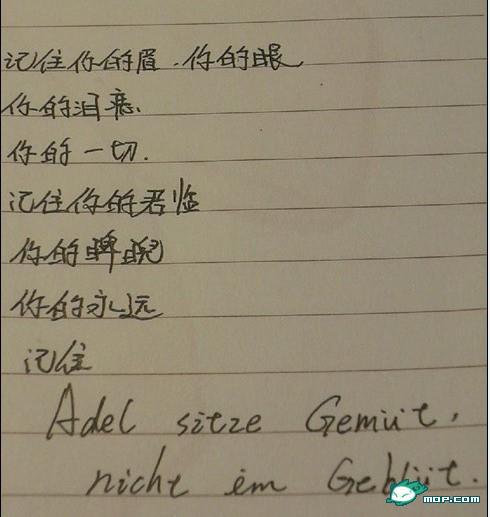 记住你的眉.你的眼
你的泪痣.
你的一切.
记住你的君临
你的睥睨
你的永远
记住
Adel sitze Gemüt,
nicht em Geblüt.
mop.com